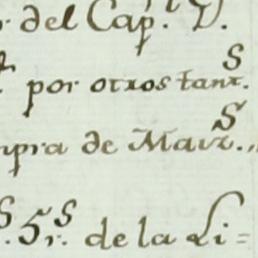 del Cap. D.
por otros tant.ˢ
pra de Marz.ˢ
5r.ˢ de la Li=